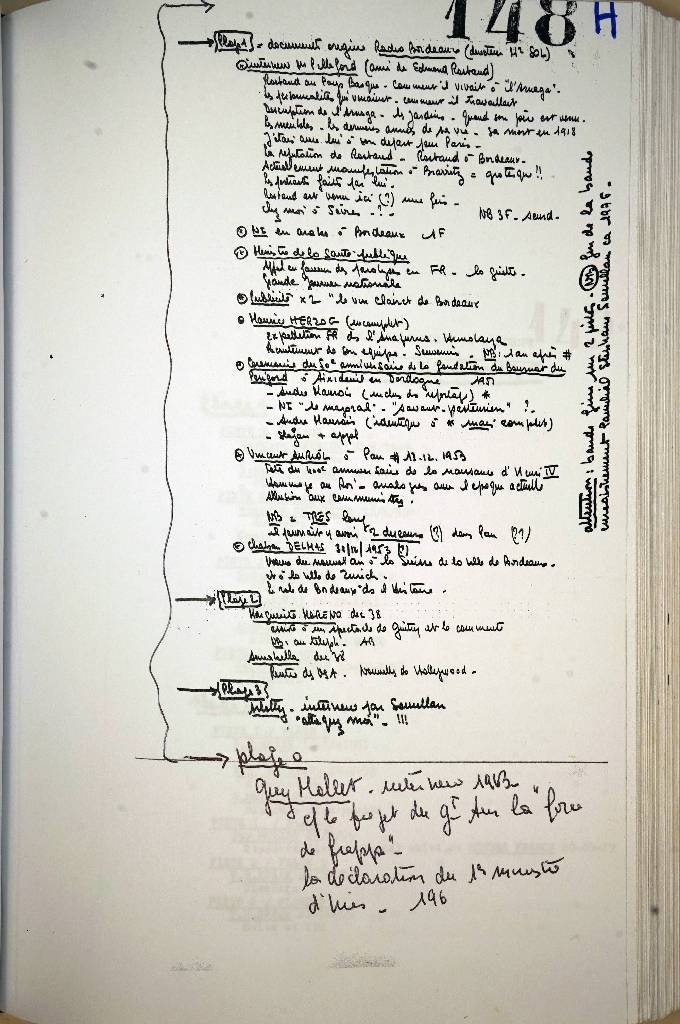 148 H
Plage 1 = documents origine Radio Bordeaux (
interview de P. (ami de Edmond Rostand)
Rostand au Pays Basque - comment il vivait à "l'Arnaga" -
les personnalités qui venaient - comment il travaillait
Description de l'Arnaga - les jardins - quand son père est venu -
les meubles - les dernières années de sa vie - sa mort en 1918
J'étais avec lui à son départ pour Paris -
la réputation de Rostand - Rostand à Bordeaux -
Actuellement manifestation à Biarritz = grotesque !!
les portraits faits par lui -
Rostand est venu ici (?) une fois -
chez moi à Sèvres - ? - NB 3F -
NI en arabe à Bordeaux AF
Ministre de la Santé publique
Appel en faveur des en FR - la
grande journée nationale
Publicité x 2 "le vin clairet de Bordeaux
Maurice HERZOG (incomplet)
expédition FR ds l'Anapurna - Himalaya
Recrutement de son équipe - Souvenirs - NB : 1 an après #
Cérémonie du 50e anniversaire de la fondation du Bournat du
Périgord à en Dordogne 1951
- André Maurois (inclus ds reportage) *
- NI "le majoral" - "savant-pasteurien" ? -
- André Maurois (identique à * mais complet)
- slogan + appl
Vincent AURIOL à Pau # 13.12.1953
Fête du 400e anniversaire de la naissance d'Henri IV
Hommage au Roi - analogies avec l'époque actuelle
Allusion aux communistes -
NB = TRES long
il pourrait y avoir 2 discours (?) dans Pau (??)
Chaban DELMAS 30/12/1953 (?)
Voeux du nouvel an à la Suisse de la ville de Bordeaux -
et à la ville de Zurich -
Le role de Bordeaux ds l'histoire -
Plage 2
Marguerite MORENO dec 38
assiste à un spectacle de Guitry et le commente
NB : au teleph - AB
Annabella dec 38
Rentre des USA - Nouvelles de Hollywood -
Plage 3
Arletty - interview par Samuillan
"attaquez moi" - !!!
plage 0
Guy Mollet - interview 1963 -
c/ le projet du gt sur la "force
de frappe" -
la déclaration du 1er ministre
d'hier - 196
attention : bande 2 pistes - NB fin de la bande
enregistrement familial Samuillan ca 1975 -